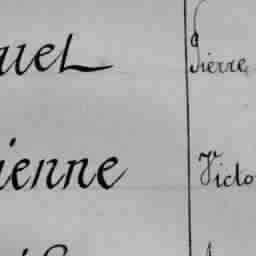 uel Pierre
ienne Victo